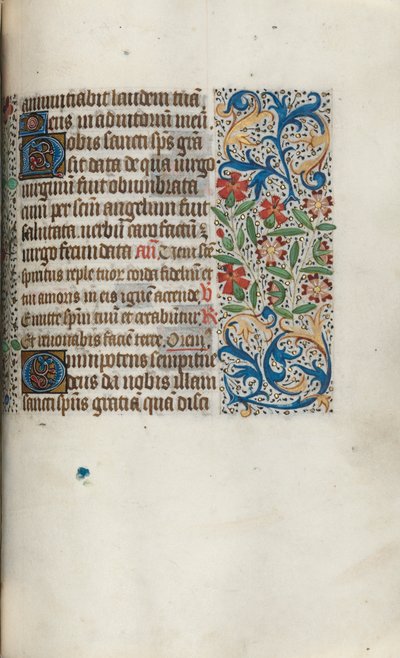 annuntiabit laudem tuā
Deus in adiutoriū meū
Nobis sancti sp̄s grā
sit data de qua uirgo
uirgini fuit obumbrata
cum per sc̄m angelum fuit
salutata uerbū caro factū ē
uirgo fecundata añ Veni sc̄e
spiritus reple tuor corda fidelium et
tui amoris in eis ignē accende V
Emitte sp̄m tuū et creabuntur R
Et renouabis faciē terre Orem
Omnipotens sempitern
deus da nobis illam
sancti spūs gratiā quā disci